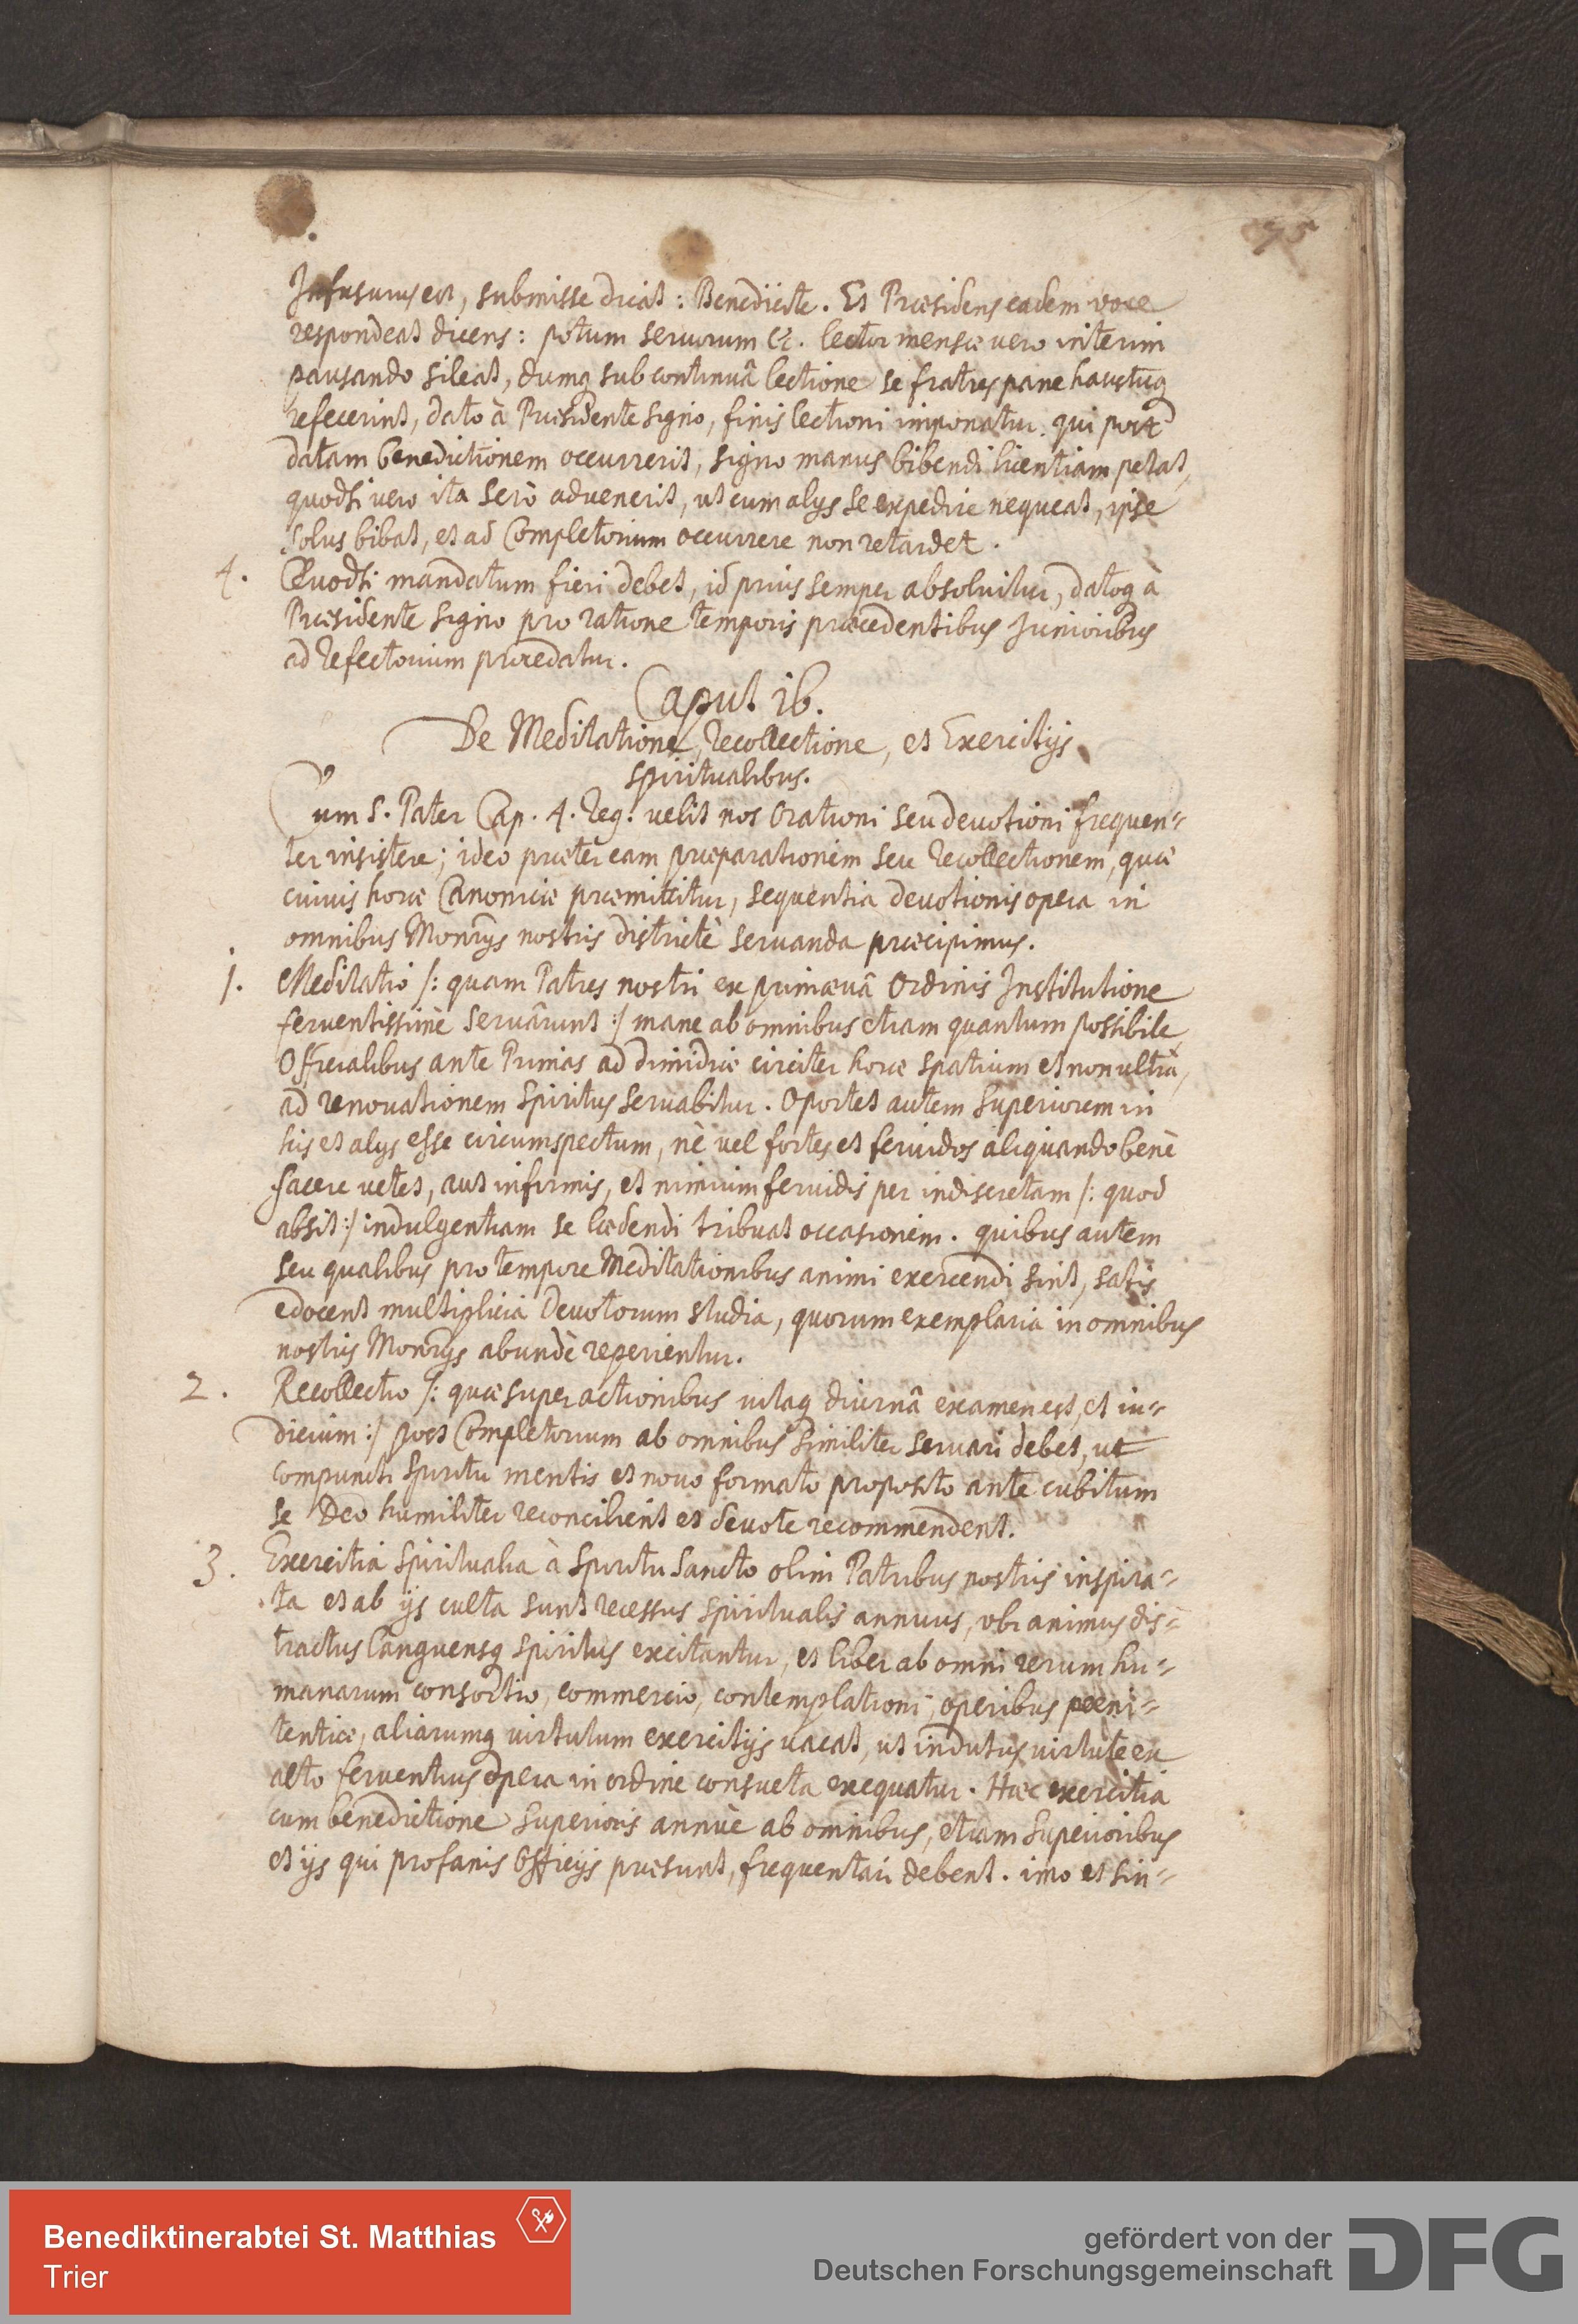 75
Infusurus est, submisse dicat: Benedicite. Et Præsidens eadem voce
respondeat dicens: potum servorum &c. lector mensæ vero interim
pausando sileat, dumq sub continuâ lectione se fratres pane haustuq
refecerint, dato à Præsidente signo, finis lectioni imponatur. qui post
datam benedictionem occurrerit, signo manus bibendi licentiam petat,
quodsi vero ita serò advenerit, ut cum alijs se expedire nequeat, ipse
solus bibat, et ad Completorium occurrere non retardet.
4. Quodsi mandatum fieri debet, id prius semper absolvitur, datoq à
Præsidente signo pro ratione temporis præcedentibus Junioribus
ad refectorium procedatur.
Caput 16.
De Meditatione, recollectione, et Exercitijs
spiritualibus.
Cum S. Pater Cap. 4. Reg. velit nos orationi seu devotioni frequen=
ter insistere; ideo præter eam præparationem seu recollectionem, quæ
cuivis horæ Canonicæ præmittitur, sequentia devotionis opera in
omnibus Monrijs nostris districtè servanda præcipimus.
1. Meditatio /: quam Patres nostri ex primævâ Ordinis Institutione
ferventissimè servârunt :/ mane ab omnibus etiam quantum possibile
Officialibus ante Primas ad dimidiæ circiter horæ spatium et non ultrà,
ad renovationem spiritus servabitur. Oportet autem superiorem in
his et alijs esse circumspectum, nè vel fortes et fervidos aliquando benè
facere vetet, aut infirmis, et nimium fervidis per indiscretam /: quod
absit :/ indulgentiam se lædendi tribuat occasionem. quibus autem
seu qualibus pro tempore Meditationibus animi exercendi sint, satis
edocent multiplicia Devotorum studia, quorum exemplaria in omnibus
nostris Monrijs abundè reperientur.
2. Recollectio /: quæ super actionibus vitaq diurnâ examen est, et iu=
dicium :/ post Completorium ab omnibus similiter servari debet, ut
compuncti spiritu mentis et novo formato proposito ante cubitum
se Deo humiliter reconcilient et devote recommendent.
3. Exercitia spiritualia à spiritu Sancto olim Patribus nostris inspira=
ta et ab ijs culta sunt recessus spiritualis annuus, ubi animus dis=
tractus languensq spiritus excitantur, et liber ab omni rerum hu=
manarum consortio, commercio, contemplationi, operibus pœni=
tentiæ, aliarumq virtutum exercitijs vacat, ut indutus virtute ex
alto ferventius opera in ordine consueta exequatur. Hæc exercitia
cum benedictione Superioris annuè ab omnibus, etiam Superioribus
et ijs qui profanis Officijs præsunt, frequentari debent. imo et sin=
Benediktinerabtei St. Matthias
Trier
gefördert von der
Deutschen Forschungsgemeinschaft
DFG